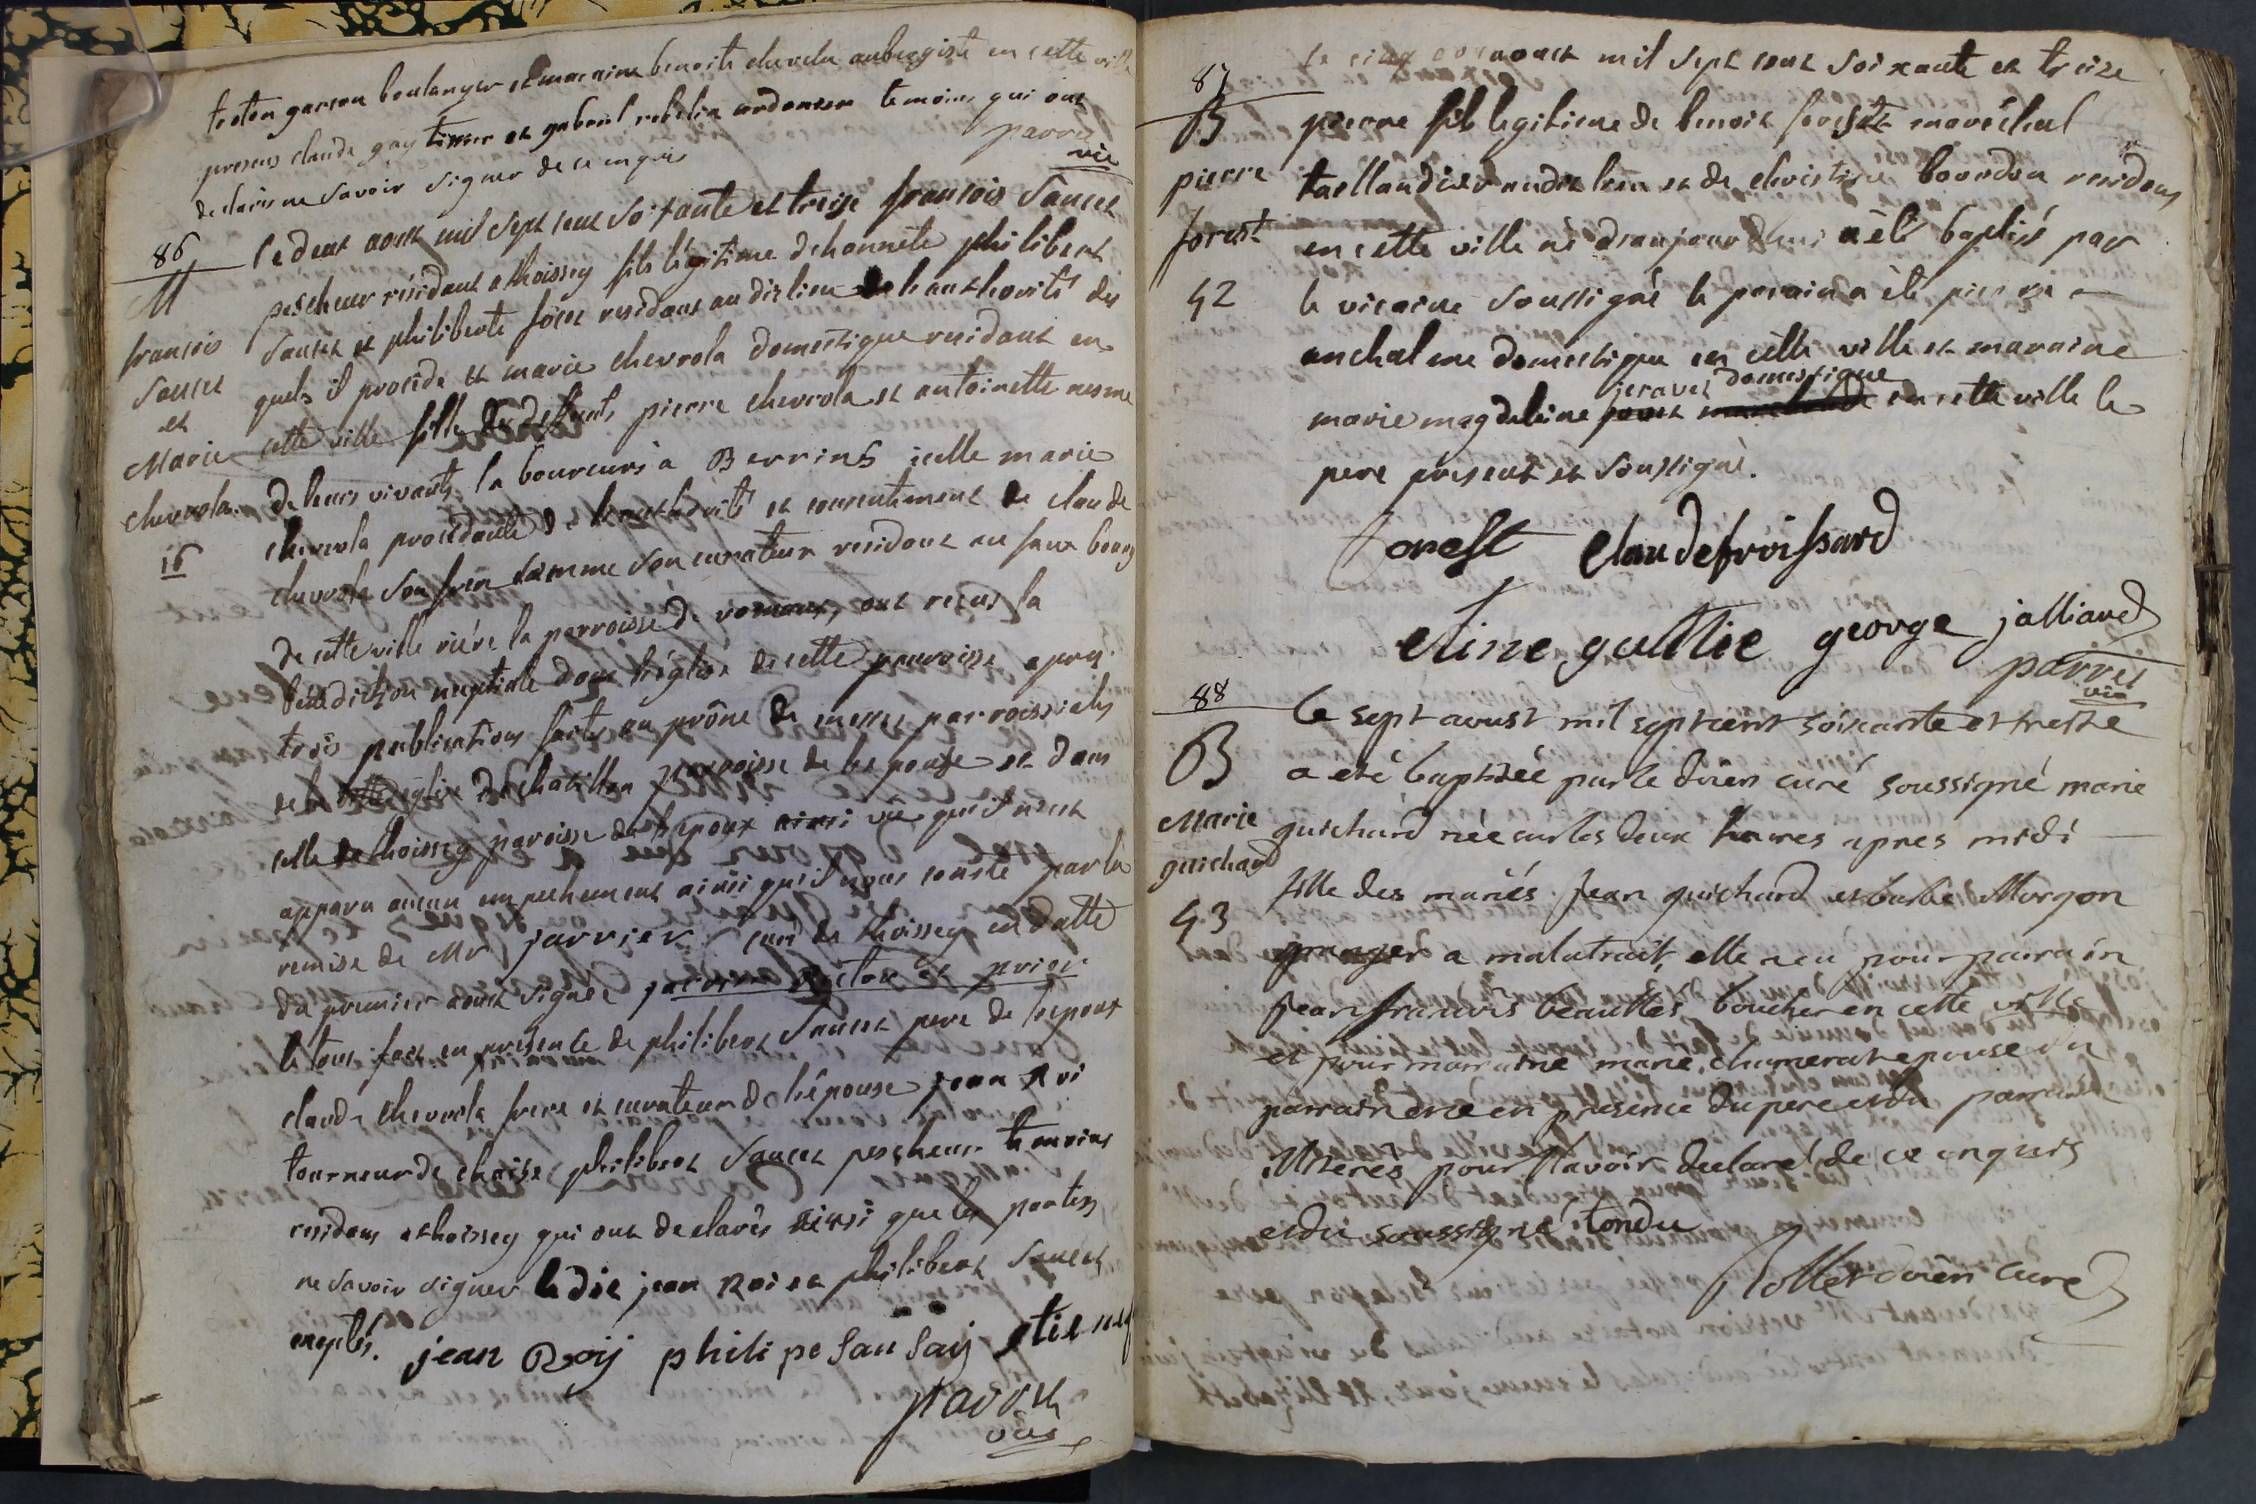 troton garson boulanger et maraine benoite chevelu aubergiste en cette ville
presens claude gay tissier et gabriel robelin cordonier temoins qui ont
declarés ne savoir signer de ce enquis
parret
vic
86
M
francois
Sancet
et
Marie
chevrola
16
le deux aoust mil sept cent soixante et treize francois Sancet
pescheur résidant a thoissey fils légitime dehonnête philibert
Sancet et philiberte résidans au dit lieu de lauthorité des
quels il procède et marie chevrola domestique residant en
cette ville fille de deffunts pierre chevrola et antoinette nesme
de leurs vivants laboureurs a Berrins icelle marie
chevrola procédante de lauthorité et consentement de claude
chevrola son frere comme son curateur residant au faux bourg
de cette ville riére la parroisse de romans, ont reçus la
bénédiction nuptiale dans l'église de cette parroisse apres
trois publications faites au prône de messes parroissiales
de la église de chatillon parroisse de lepouse et dans
celle de thoissey paroisse de lepoux ainsi vû quil nest
apparu aucun empechement ainsi quil nous conste par la
remise de Mr jarrier curé de thoissey en datte
du premier aoust signée jarrier et prieur
le tout fait en presence de philibert Sancet pere de lepoux
claude chevrola frere et curateur de lépouse jean Roi
tourneur de chaises philibert Sancet pescheur temoins
residans a thoissey qui ont declarés ainsi que les parties
ne savoir signer le dit jean Roi et philibert Sancet
exeptés. jean Roy philipe San Say etiene
parret
vic
87
B
pierre
forest
42
le cinq aoust mil sept cent soixante et treize
pierre fils legitime de benoit forest maréchal
taillandier audit lieu et de christine bourdon residens
en cette ville né d'aujourdhui a èté baptisé par
le vicaire soussigné le parain a èté pierre
anchalme domestique en cette ville et maraine
marie magdeleine jeravet domestique en cette ville le
pere present et soussigné.
forest claude froissard
george jalliard
parret
vic
88
B
Marie
guichard
43
Le sept aoust mil sept cent soixante et treize
a eté baptisée par le doien curé soussigné marie
guichard née sur les deux heures apres midi
fille des mariés jean guichard et barbe Morgon
granger a malatrait, elle a eu pour parrain
jean francois beaulles boucher en cette ville
et pour marraine marie chamerat epouse du
parrain en presence du pere et du parrain
illiteres pour l'avoir declaré de ce enquis
et du soussigné tondu
doien curé